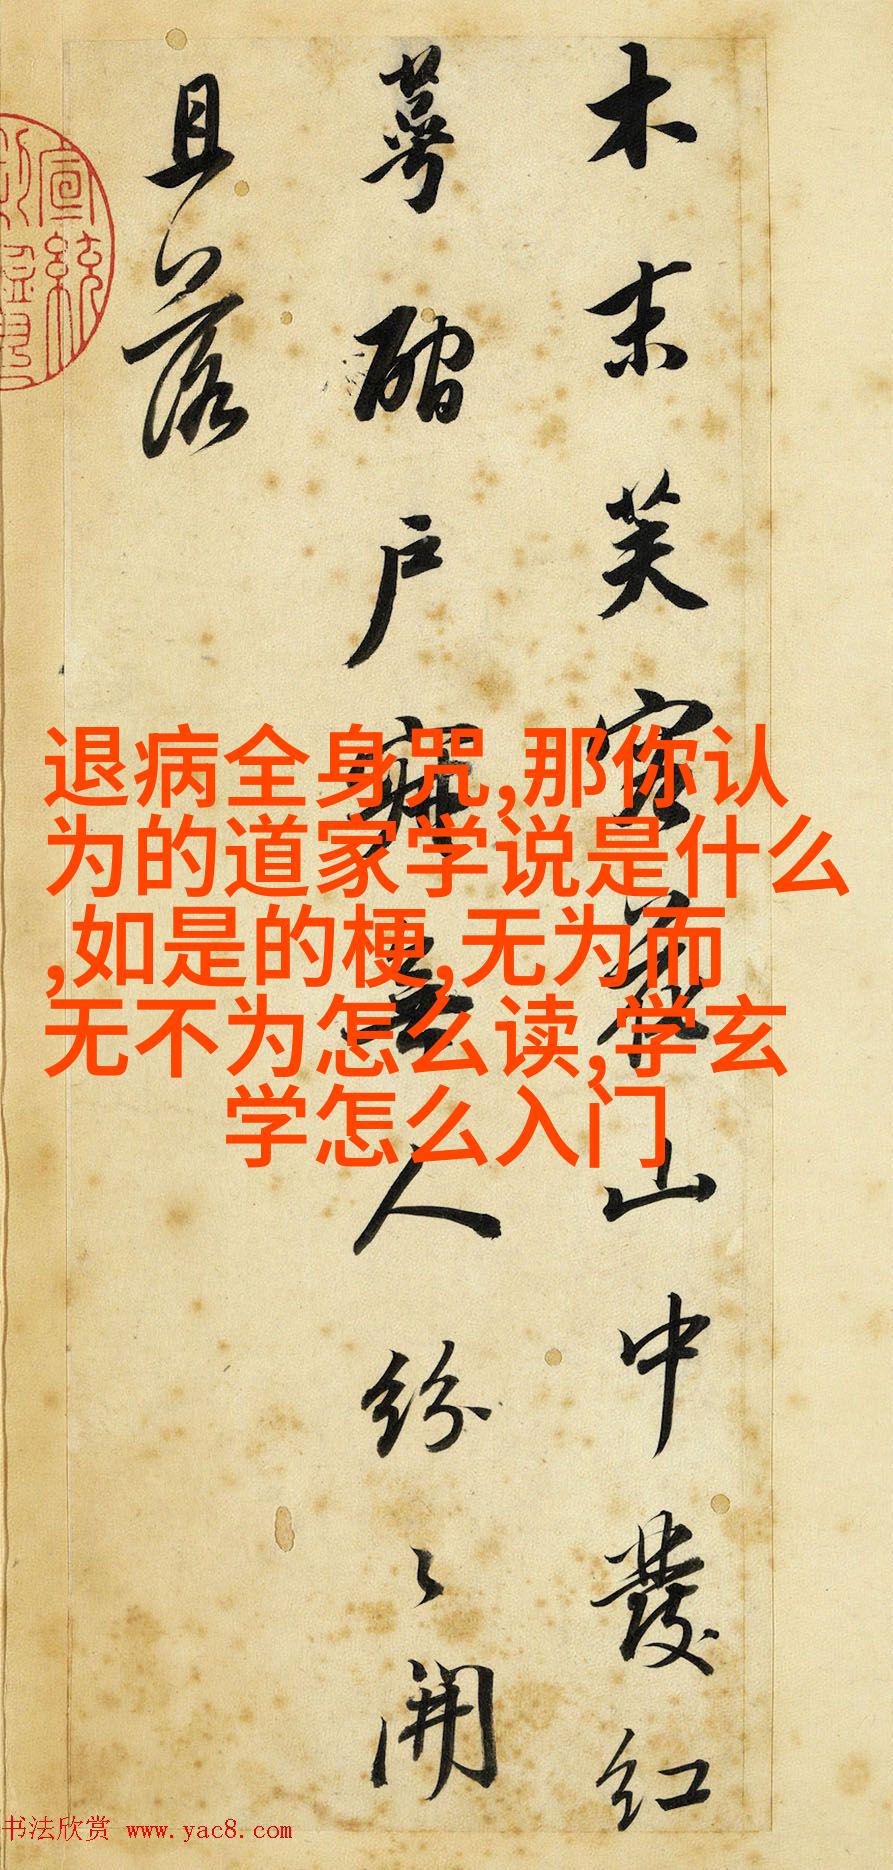 木末芙容花山中發紅
萼硘户寂無人紛〻開
且落
退病全身咒,那你认
为的道家学说是什么
,如是的梗,无为而
无不为怎么读,学玄
学怎么入门
宣統
书法欣赏 www.yac8.com